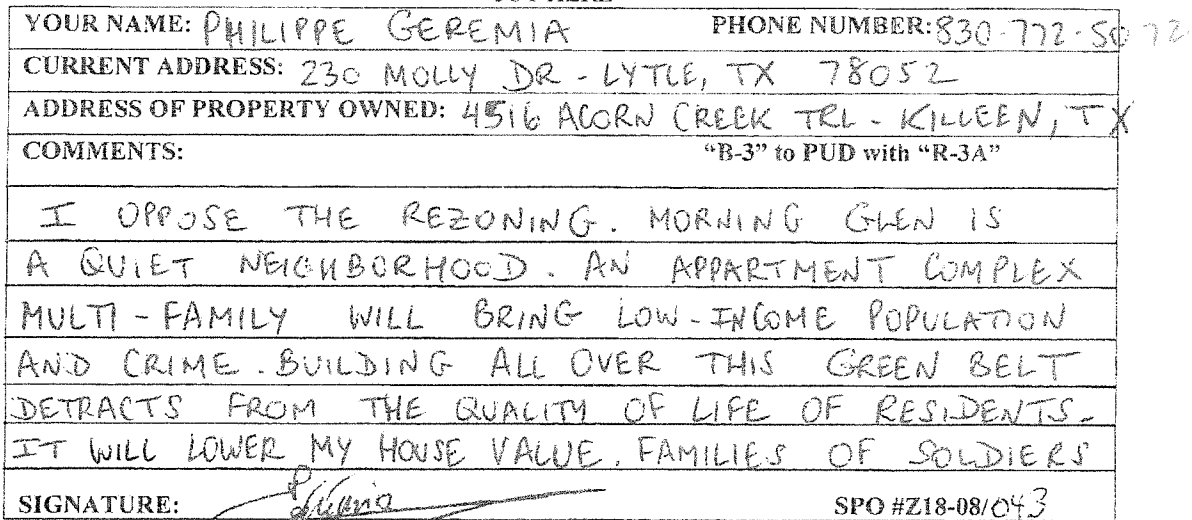 YOUR NAME: PHILIPPE GEREMIA PHONE NUMBER: 830-772-5072
CURRENT ADDRESS: 230 MOLLY DR - LYTLE, TX 78052
ADDRESS OF PROPERTY OWNED: 4516 ACORN CREEK TRL - KILLEEN, TX
COMMENTS: "B-3" to PUD with "R-3A"
I OPPOSE THE REZONING. MORNING GLEN IS
A QUIET NEIGHBORHOOD. AN APPARTMENT COMPLEX
MULTI-FAMILY WILL BRING LOW-INCOME POPULATION
AND CRIME. BUILDING ALL OVER THIS GREEN BELT
DETRACTS FROM THE QUALITY OF LIFE OF RESIDENTS.
IT WILL LOWER MY HOUSE VALUE. FAMILIES OF SOLDIERS
SIGNATURE: SPO #Z18-08/043